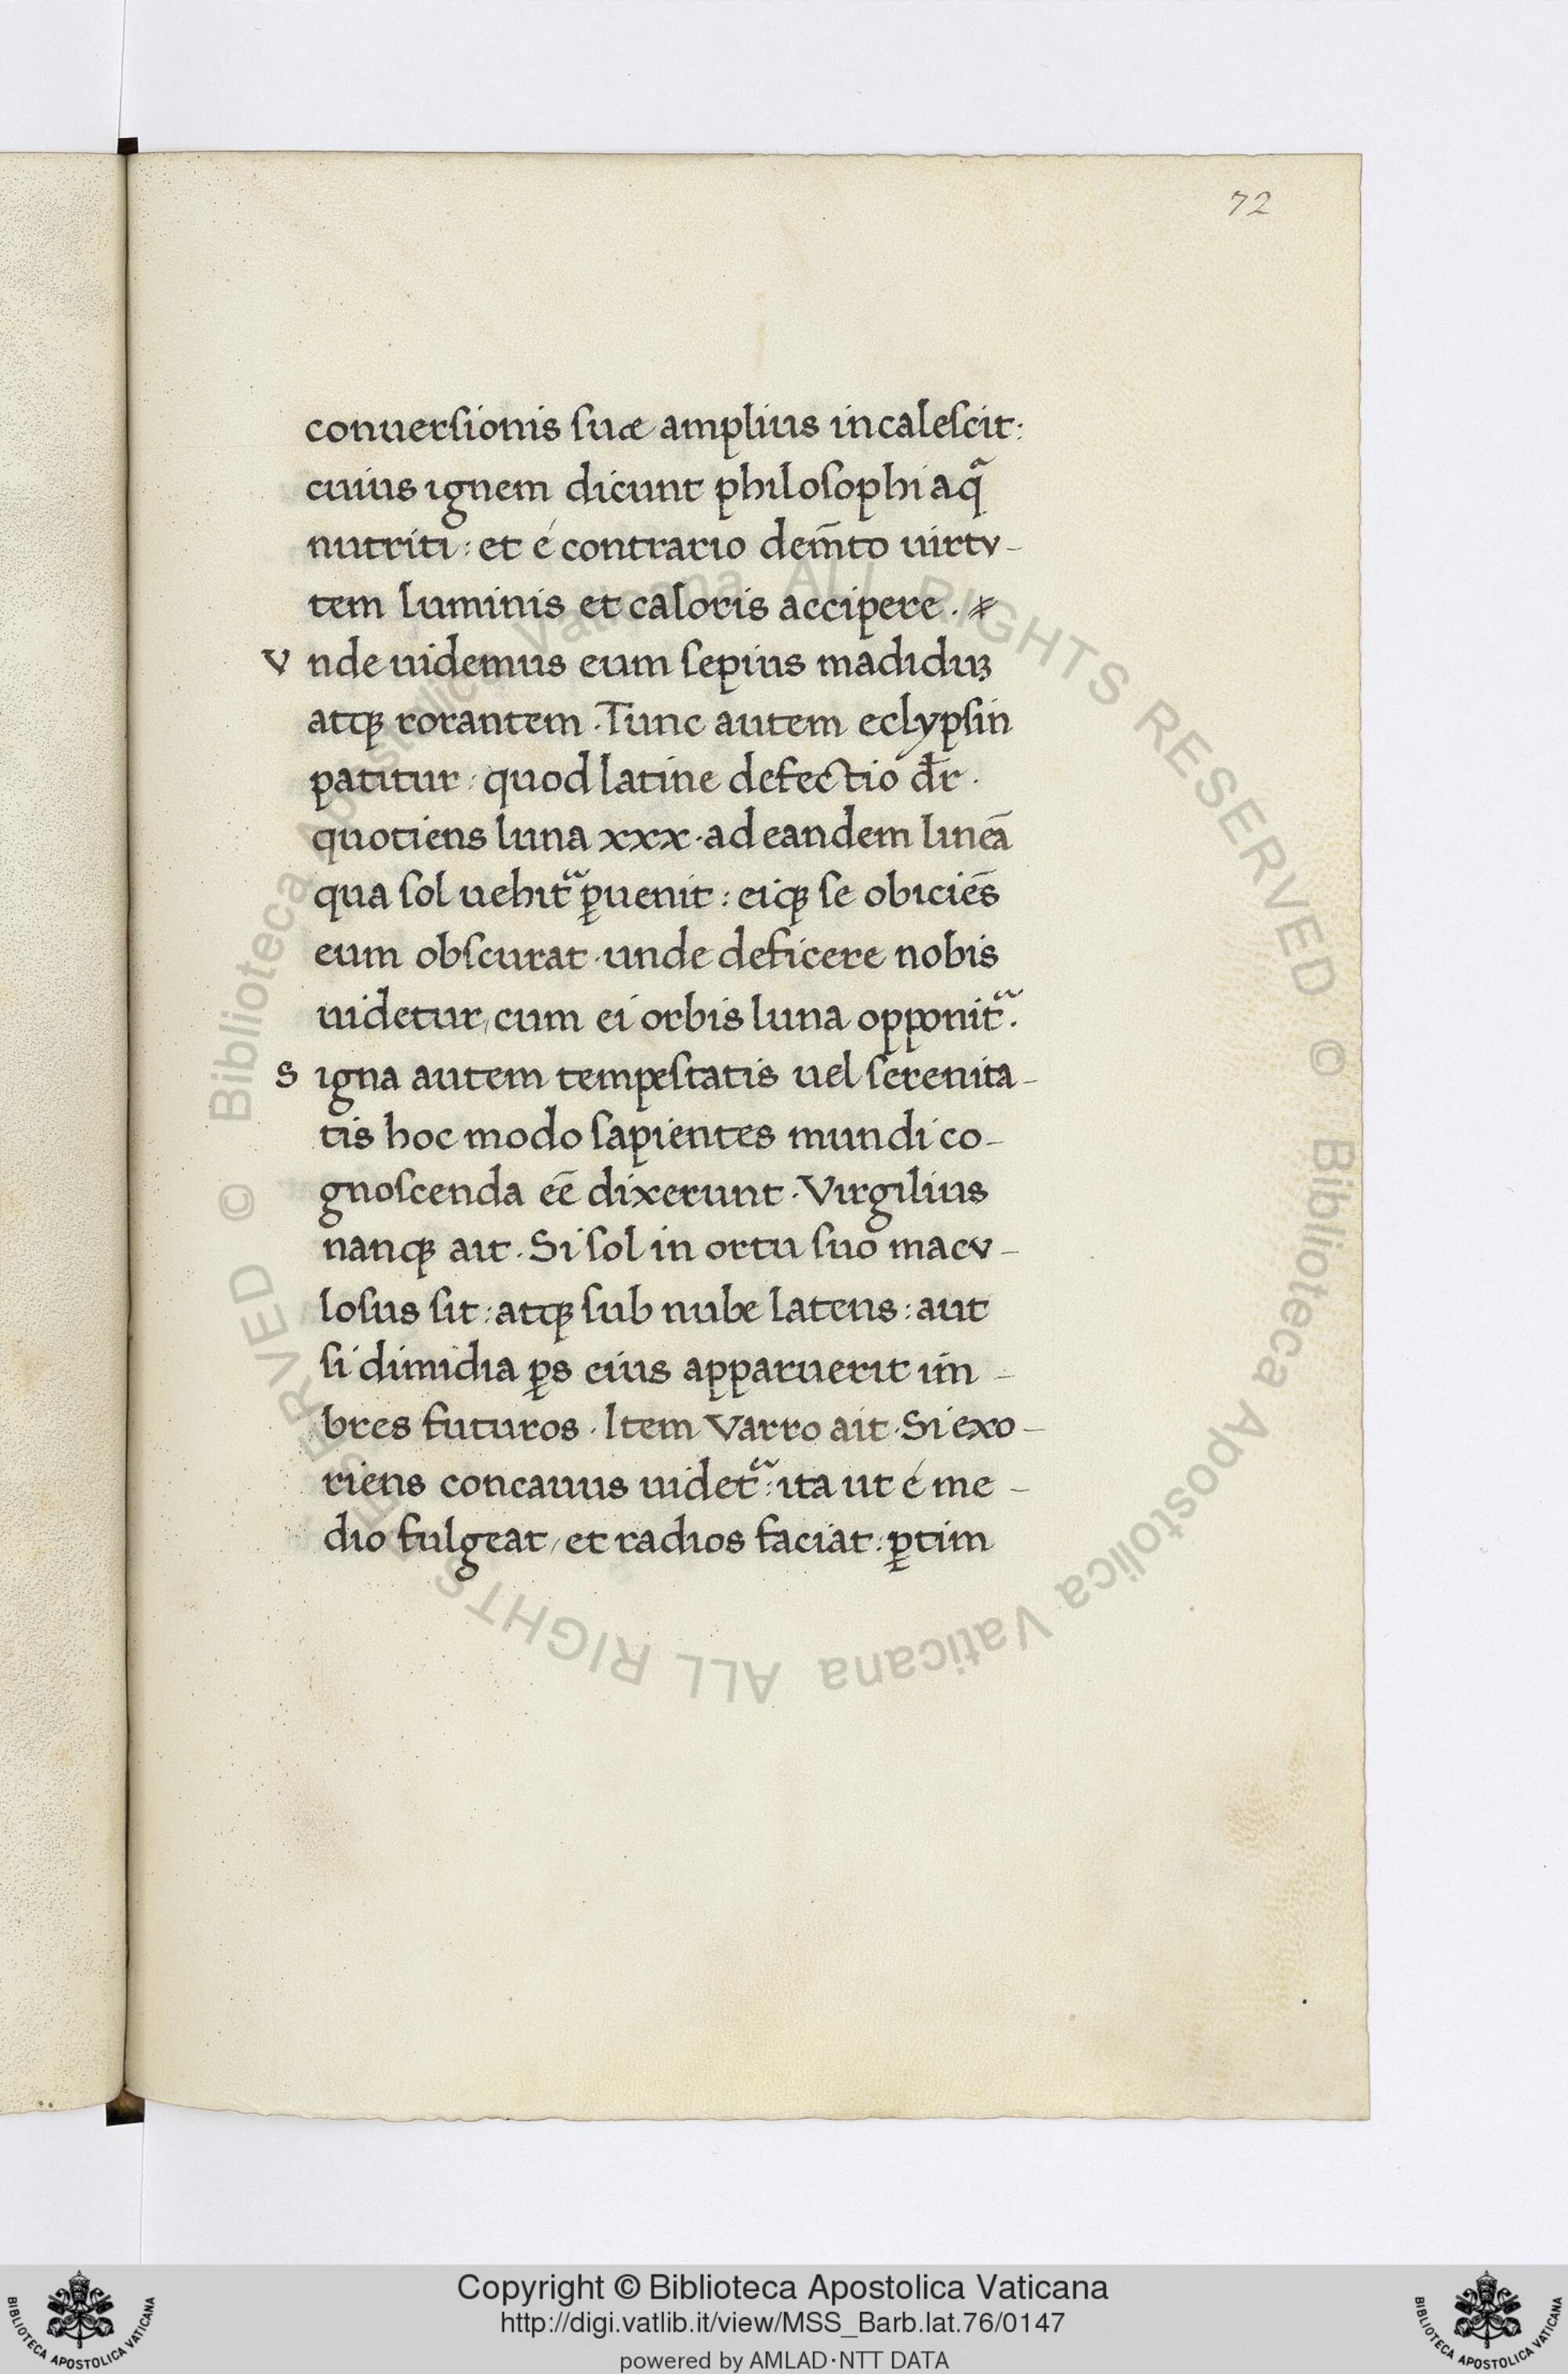 72
conuerſionis ſuæ amplius incaleſcit:
cuius ignem dicunt philoſophi aq̃
nutriti: et é contrario dem̃to uirtv-
tem luminis et caloris accipere.
Vnde uidemus eum ſepius madiduꝫ
atqꝫ rorantem. Tunc autem eclypſin
patitur: quod latine defectio dr̄.
quotiens luna xxx. ad eandem lineā
qua ſol uehit᷑ ꝑuenit: eiqꝫ ſe obiciēs
eum obſcurat. unde deficere nobis
uidetur, cum ei orbis luna opponit᷑.
Signa autem tempeſtatis uel ſerenita-
tis hoc modo ſapientes mundi co-
gnoſcenda eē dixerunt. Virgilius
nanqꝫ ait. Si ſol in ortu ſuo macv-
loſus ſit: atqꝫ ſub nube latens: aut
ſi dimidia ꝑs eius apparuerit im-
bres futuros. Item Varro ait. Si exo-
riens concauus uidet᷑: ita ut é me-
dio fulgeat, et radios faciat: ꝑtim
© Biblioteca Apostolica Vaticana ALL RIGHTS RESERVED © Biblioteca Apostolica Vaticana ALL RIGHTS RESERVED
Copyright © Biblioteca Apostolica Vaticana
http://digi.vatlib.it/view/MSS_Barb.lat.76/0147
powered by AMLAD·NTT DATA
BIBLIOTECA APOSTOLICA VATICANA
BIBLIOTECA APOSTOLICA VATICANA